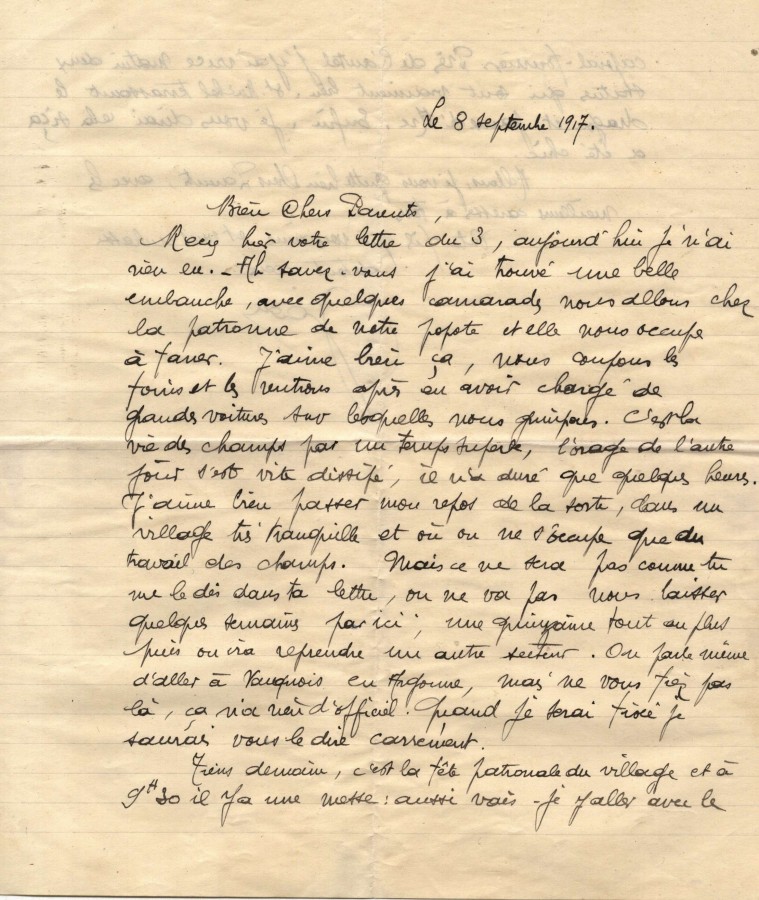 Le 8 septembre 1917.
Bien Chers Parents,
Reçu hier votre lettre du 3, aujourd'hui je n'ai
rien eu. - Ah savez-vous j'ai trouvé une belle
embauche, avec quelques camarades nous allons chez
la patronne de notre popote et elle nous occupe
à faner. J'aime bien ça, nous coupons les
foins et les rentrons après en avoir chargé de
grandes voitures sur lesquelles nous grimpons. C'est la
vie des champs par un temps superbe, l'orage de l'autre
jour s'est vite dissipé, il n'a duré que quelques heures.
J'aime bien passer mon repos de la sorte, dans un
village très tranquille et où on ne s'occupe que du
travail des champs. Mais ce ne sera pas comme tu
me le dis dans ta lettre, on ne va pas nous laisser
quelques semaines par ici, une quinzaine tout au plus
puis on ira reprendre un autre secteur. On parle même
d'aller à Vauquois en Argonne, mais ne vous fiez pas
là, ça n'a rien d'officiel. Quand je serai fixé je
saurai vous le dire carrément.
Tiens demain, c'est la fête patronale du village et à
9H30 il y a une messe : aussi vais-je y aller avec le